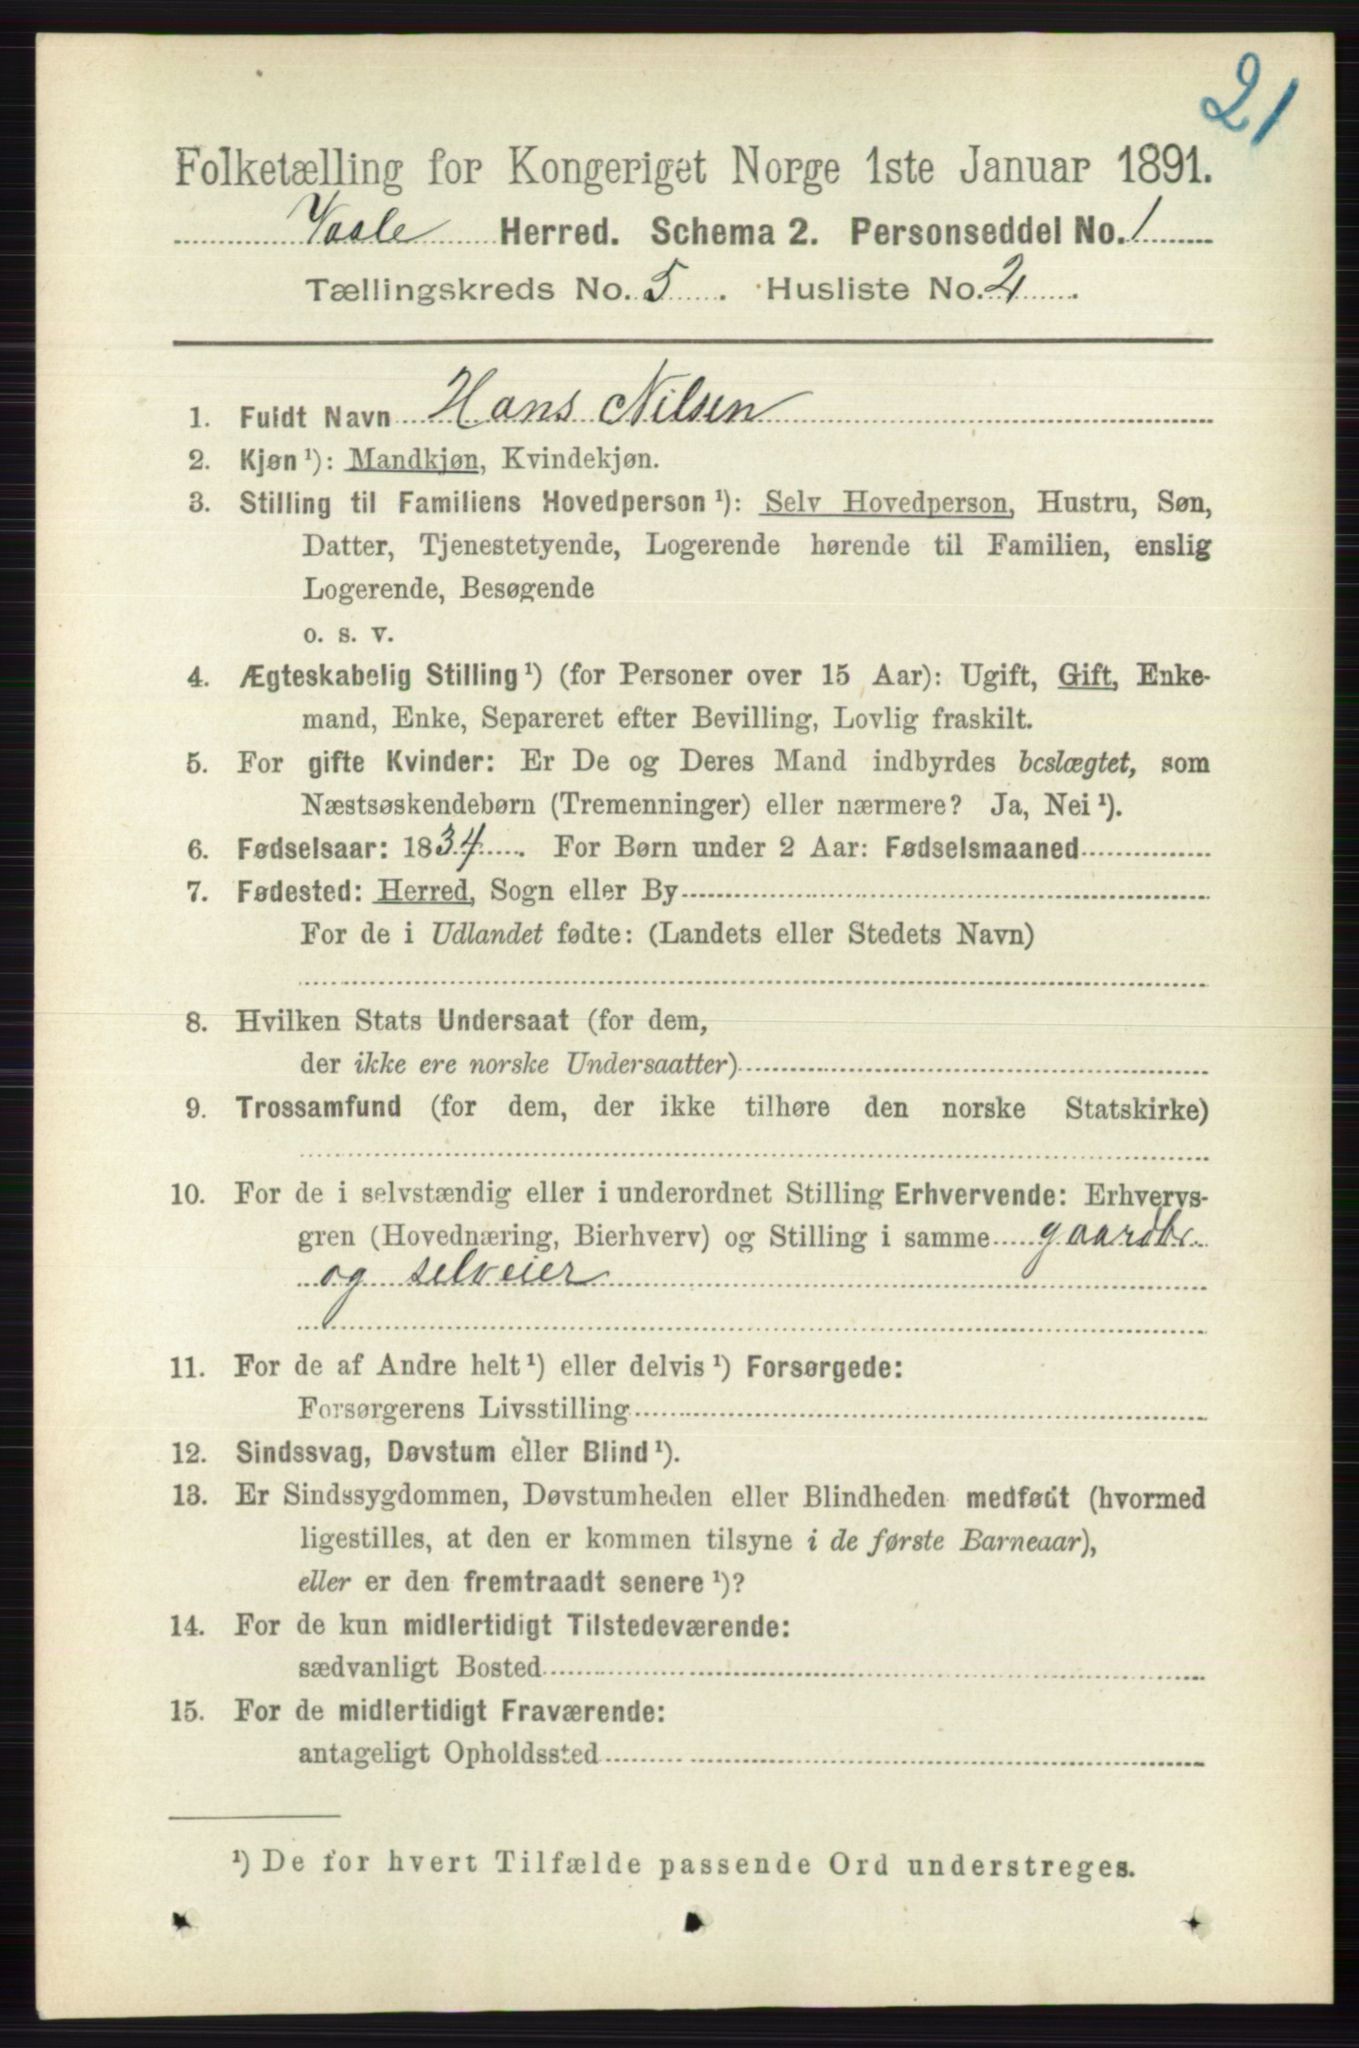 21
Folketælling for Kongeriget Norge 1ste Januar 1891.
Vaale Herred. Schema 2. Personseddel No. 1
Tællingskreds No. 5. Husliste No. 2.
1. Fuldt Navn Hans Nilsen
2. Kjøn ¹): Mandkjøn, Kvindekjøn.
3. Stilling til Familiens Hovedperson ¹): Selv Hovedperson, Hustru, Søn,
Datter, Tjenestetyende, Logerende hørende til Familien, enslig
Logerende, Besøgende
o. s. v.
4. Ægteskabelig Stilling ¹) (for Personer over 15 Aar): Ugift, Gift, Enke-
mand, Enke, Separeret efter Bevilling, Lovlig fraskilt.
5. For gifte Kvinder: Er De og Deres Mand indbyrdes beslægtet, som
Næstsøskendebørn (Tremenninger) eller nærmere? Ja, Nei ¹).
6. Fødselsaar: 1834. For Børn under 2 Aar: Fødselsmaaned
7. Fødested: Herred, Sogn eller By
For de i Udlandet fødte: (Landets eller Stedets Navn)
8. Hvilken Stats Undersaat (for dem,
der ikke ere norske Undersaatter)
9. Trossamfund (for dem, der ikke tilhøre den norske Statskirke)
10. For de i selvstændig eller i underordnet Stilling Erhvervende: Erhvervs-
gren (Hovednæring, Bierhverv) og Stilling i samme gaardbr.
og selveier
11. For de af Andre helt ¹) eller delvis ¹) Forsørgede:
Forsørgerens Livsstilling
12. Sindssvag, Døvstum eller Blind ¹).
13. Er Sindssygdommen, Døvstumheden eller Blindheden medfødt (hvormed
ligestilles, at den er kommen tilsyne i de første Barneaar),
eller er den fremtraadt senere ¹)?
14. For de kun midlertidigt Tilstedeværende:
sædvanligt Bosted
15. For de midlertidigt Fraværende:
antageligt Opholdssted
¹) De for hvert Tilfælde passende Ord understreges.